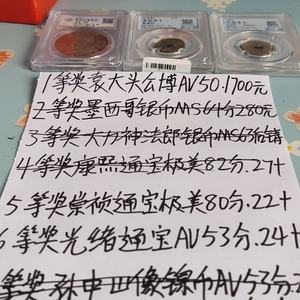 1等奖袁大头公博AV50.1700元
2等奖墨西哥银币MS64分280元
3等奖大力神法郎银币MS63
4等奖康熙通宝极美82分.27+
5等奖崇祯通宝极美80分.22+
6等奖光绪通宝AV53分.24+
等奖孙中山像镍币AV53分